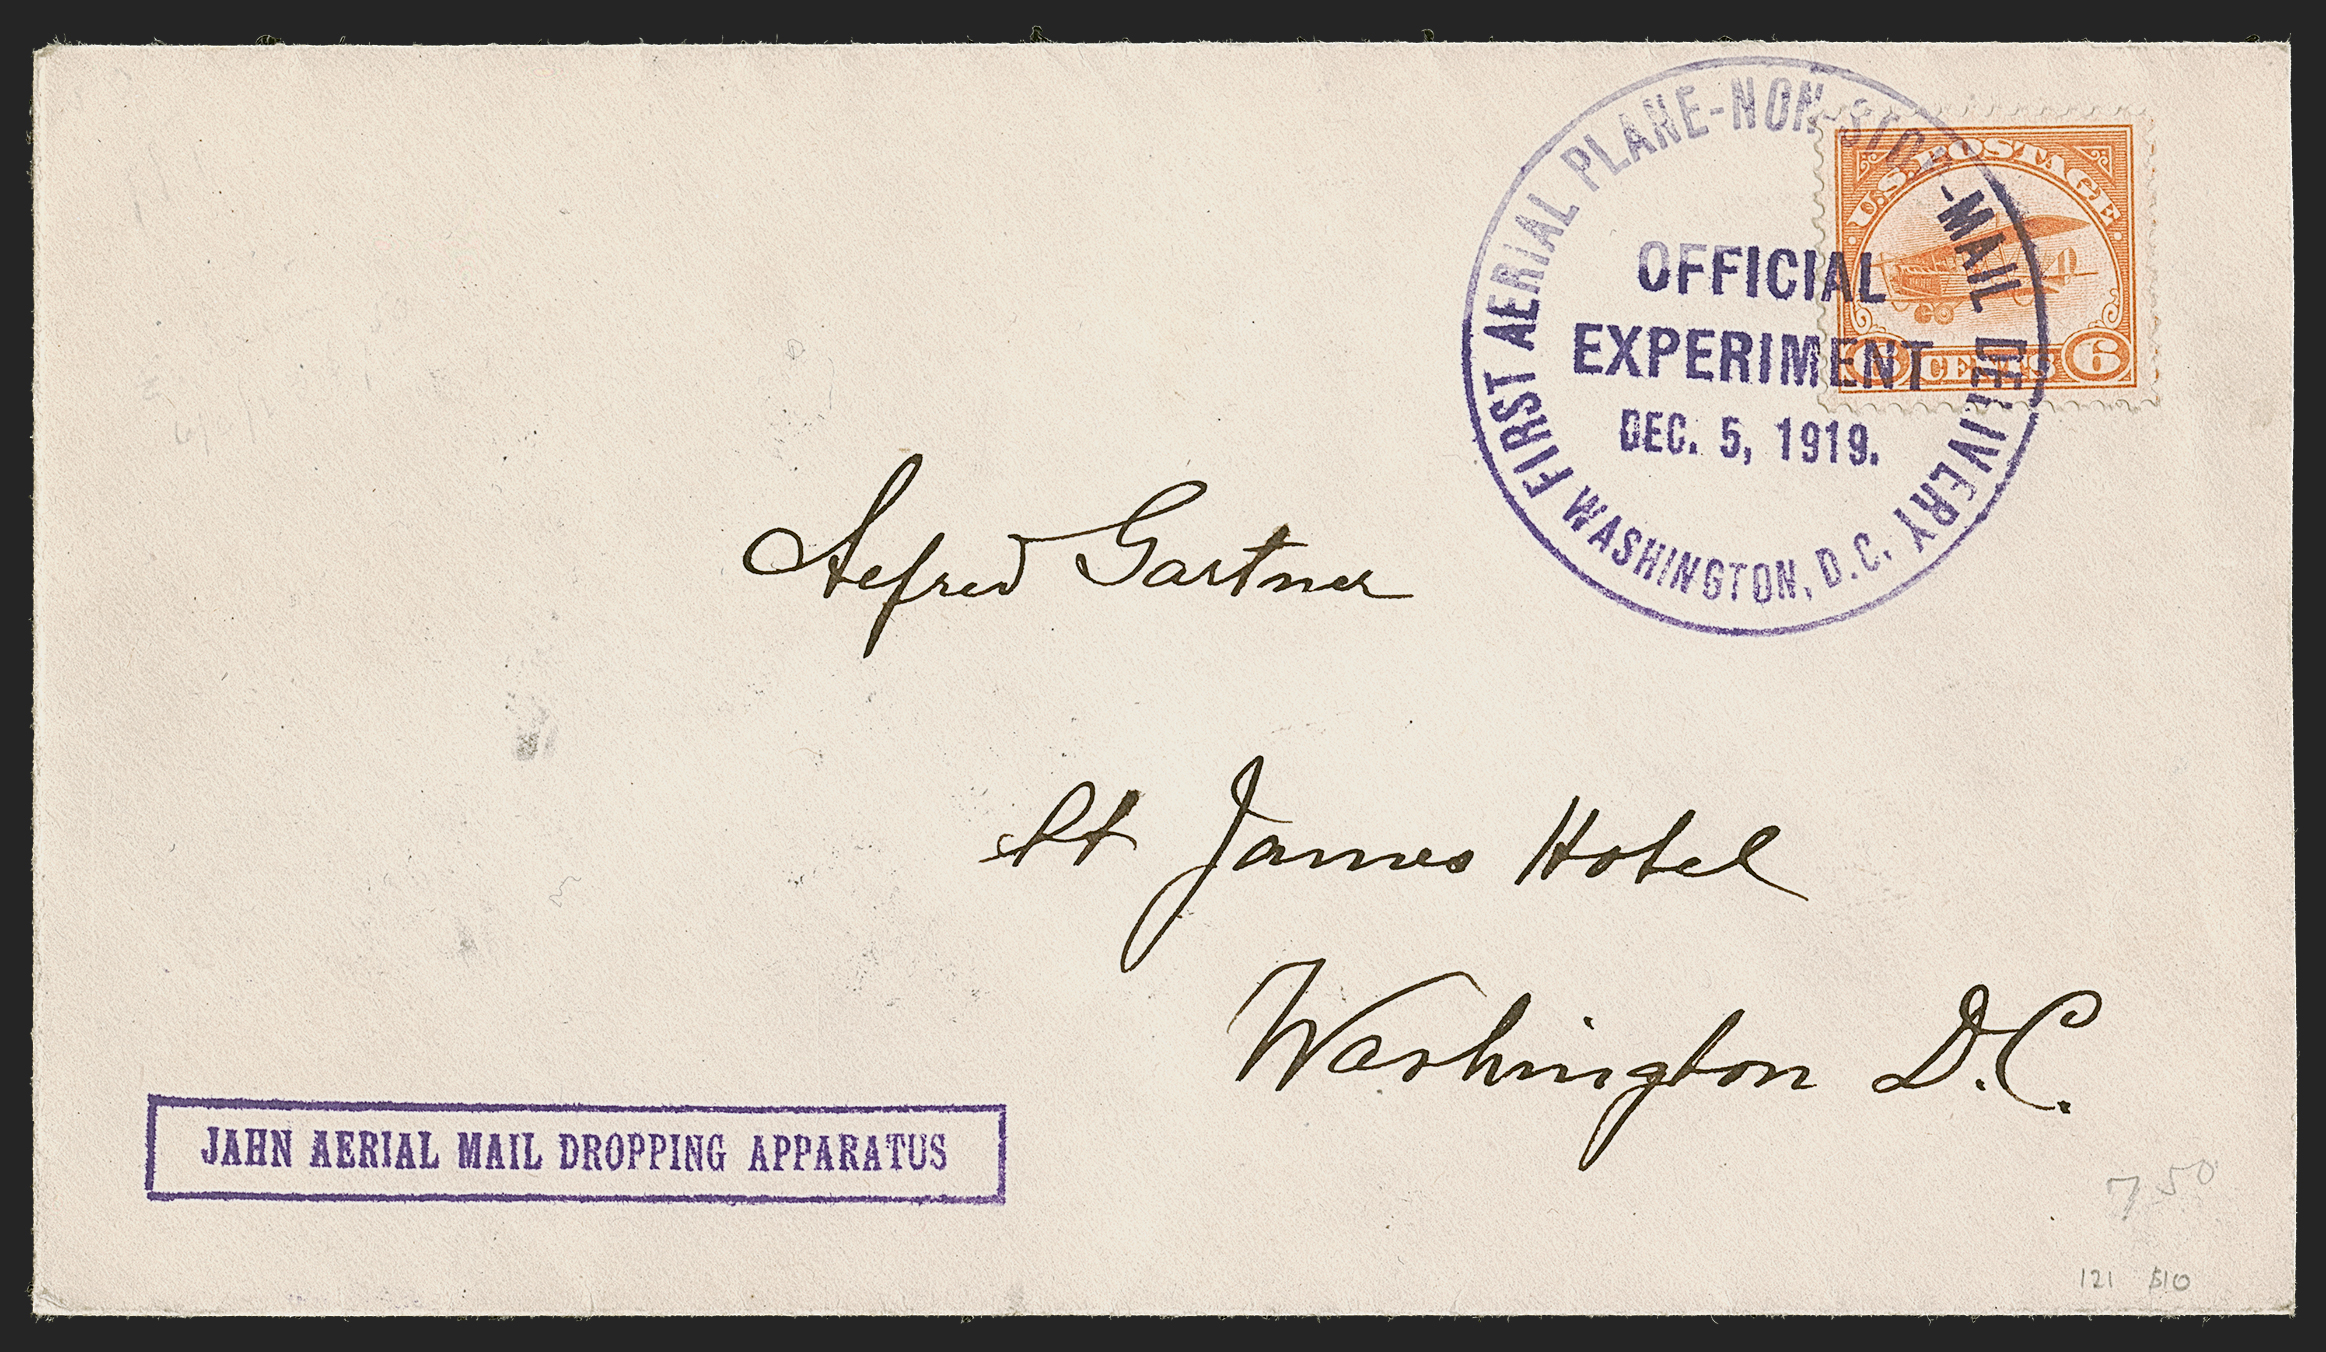 FIRST AERIAL PLANE-NON-STOP-MAIL DELIVERY
WASHINGTON, D.C.
OFFICIAL
EXPERIMENT
DEC. 5, 1919.
U.S. POSTAGE
6 CENTS 6
Alfred Gartner
St James Hotel
Washington D.C.
JAHN AERIAL MAIL DROPPING APPARATUS
7 50
121 $10